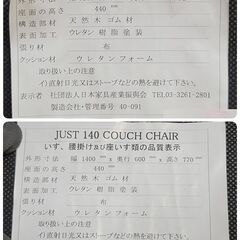 座面の高さ 440 mm
構造部材 天然木 ゴム材
表面加工 ウレタン樹脂塗装
張り材 布
クッション材 ウレタンフォーム
取り扱い上の注意
イ)直射日光又はストーブなどの熱を避けて下さい。
表示者 社団法人日本家具産業振興会 TEL03-3261-2801
製造会社・管理番号 40-091
JUST 140 COUCH CHAIR
いす、腰掛け及び座いす類の品質表示
外形寸法 幅 1400 mm x 奥行 600 mm x 高さ 770 mm
座面の高さ 440 mm
構造部材 天然木 ゴム材
表面加工 ウレタン樹脂塗装
張り材 布
クッション材 ウレタンフォーム
取り扱い上の注意
イ)直射日光又はストーブなどの熱を避けて下さい。